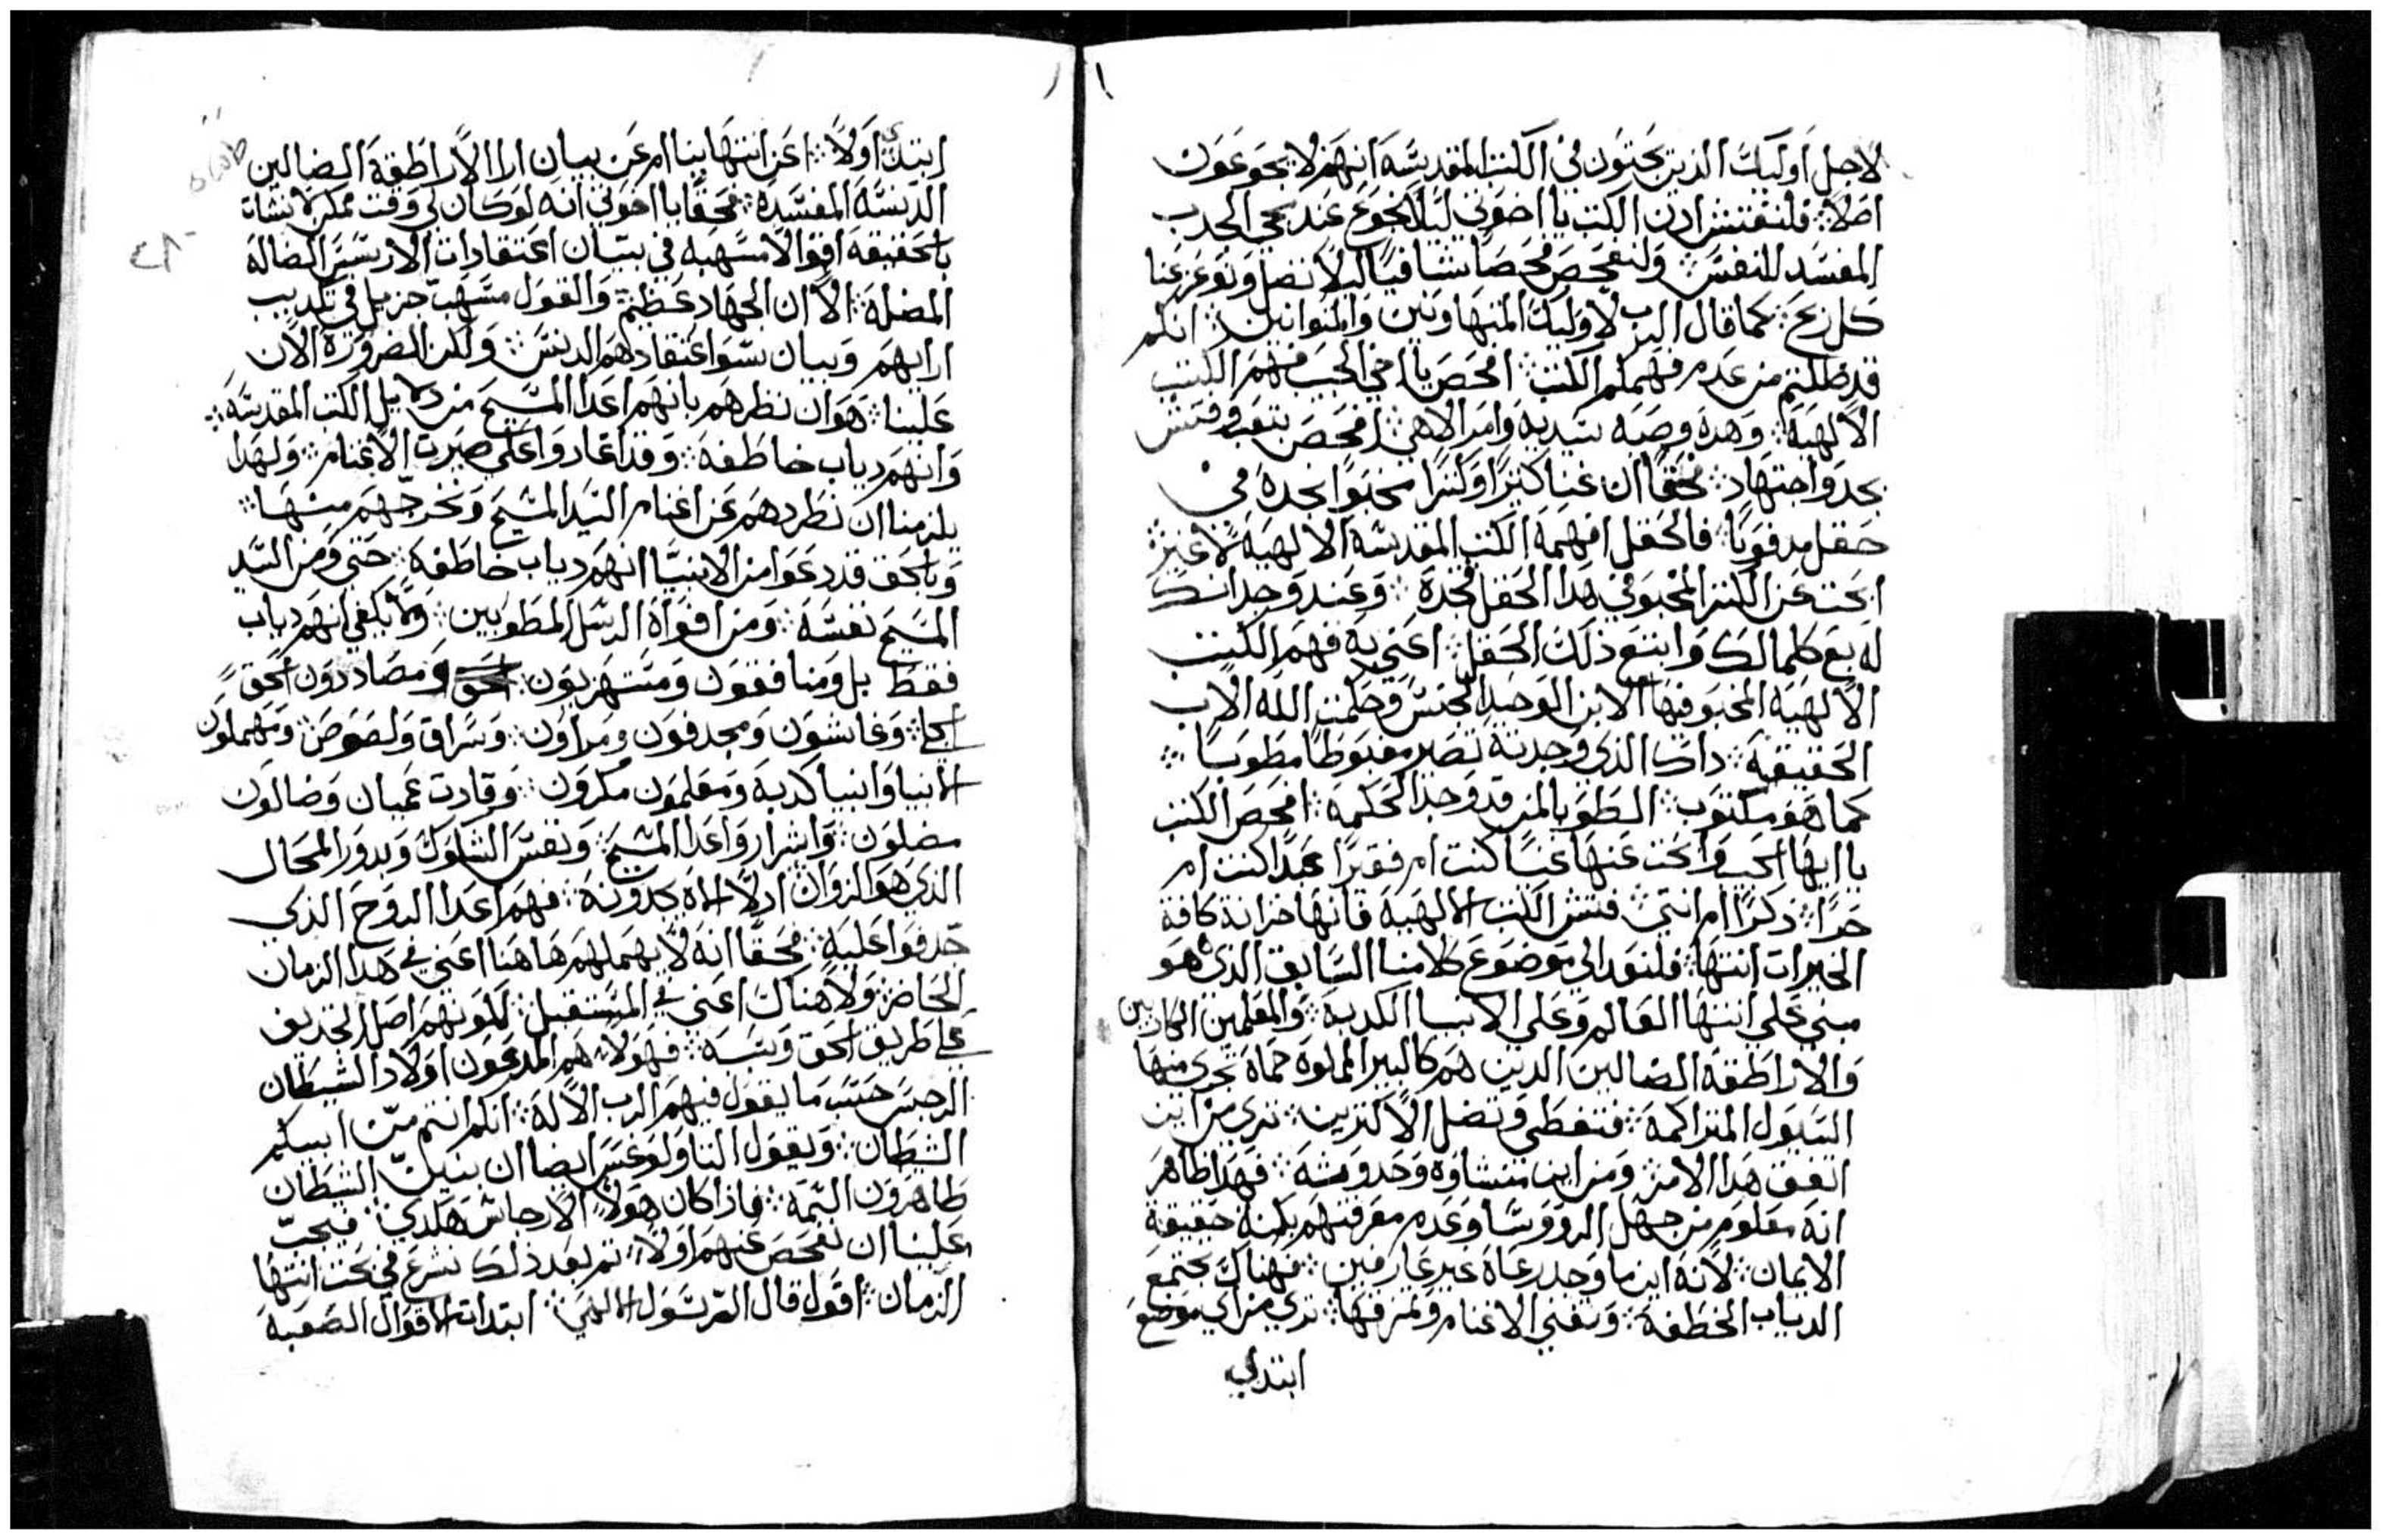 لاجل اوليك الذين يحبون في الكتب المقدسه انهم لا يجوعون
اصلاً ∴ فلنفتش اذن الكتب يا اخوتي ليلا نجوع عند مجي الجدب
المفسد للنفس ∴ ولنفحص فحصاً شافياً ليلا نضل ونوعزعنا
كل ريح ∴ كما قال الرب لاوليك المتهاونين والمتوانين ∴ انكم
قد ظللتم من عدم فهمكم الكتب ∴ افحص يا اخي الحبيب فهم الكتب
الالهيه ∴ وهده وصيه سيديه وامر الاهي ∴ افحص بتعب وفتش
بجد واجتهاد ∴ بحقاً ان غنا كثيرا وكنزا مخبوا نجده في
حقل مدفوناً ∴ فالحقل افهمه الكتب المقدسه الالهيه لا غير ∴
ابحث عن الكنز المخبو في هدا الحقل فتجده ∴ وعند وجدانك
له بع كلما لك وابتع ذلك الحقل ∴ اعني به فهم الكتب
الالهيه المخبو فيها الابن الوحيد الجنس وحكمت الله الاب
الحقيقيه ∴ داك الذي وجدته تصير مغبوطا مطوبا ∴
كما هو مكتوب ∴ الطوبا لمن قد وجد الحكمه ∴ افحص الكتب
يا ايها الحبيب وابحث عنها غنياً كنت ام فقيراً عبداً كنت ام
حرا ∴ دكرًا ام انتي ∴ فتش الكتب الالهيه فانها خزانة كافة
الخيرات انتها ∴ فلنعود الي موضوع كلامنا السابق الذي هو
مبني علي انتها العالم وعلي الانبيا الكدبه ∴ والمعلمين الكادبين
والاراطقه الضالين الدين هم كالبير المملوه حماه تجري منها
السيول المتراكمه ∴ فتغطي وتضل الاكثرين ∴ تري من اين
اتفق هدا الامر ∴ ومن اين منشاوه وحدوسه ∴ فهدا ظاهر
انه معلوم من جهل الرووسا وعدم معرفتهم بكنه حقيقة
الايمان ∴ لانه اين ما وجد رعاه غير عارفين ∴ فهناك تجتمع
الدياب الخطفه ∴ وتفني الاغنام وتمزقها ∴ تري من اي موضع
ابتدي
ابتدي اولاً ∴ اعن انتهاينا ام عن بيان ارا الاراطقة الضالين
الدنسه المفسده ∴ فحقاً يا اخوتي انه لو كان لي وقت ممكن لانشات
بالحقيقه اقوالا مسهبه في بيان اعتقادات الارتسيس الضالة
المضله ∴ الا ان الجهاد عظيم ∴ والقول مسهب جزيل في تكديب
ارايهم وبيان سوا اعتقادهم الدنس ∴ ولكن الضروره الان
علينا ∴ هو ان نظرهم بانهم اعدا المسيح من دلايل الكتب المقدسه ∴
وانهم دياب خاطفه ∴ وقد اغاروا علي صيرت الاغنام ∴ ولهدا
يلزمنا ان نطردهم عن اغنام السيد المسيح ونخرجهم منها ∴
وبالحق قد دعوا من الانبيا انهم دياب خاطفه ∴ حتي ومن السيد
المسيح نفسه ∴ ومن افواه الرسل المطوبين ∴ ولا يكفي انهم دياب
فقط بل ومنافقون ومستهزيون ∴ الحق ومضاددون الحق
الجا ∴ وغاشون ومجدفون ومراون ∴ وسراق ولصوص ∴ ومهملون
الانبيا وانبيا كدبه ومعلمون مكرون ∴ وقادت عميان وضالون
مضلون ∴ واشرار واعدا المسيح ∴ ونفس الشكوك وبدور المحال
الذي هو الزوان اولاده يدعونه ∴ فهم اعدا الروح الذي
جدفوا عليه ∴ فحقاً انه لا يهملهم هاهنا اعني في هدا الزمان
الحاضر ولا هناك اعني في المستقبل ∴ لكونهم اصل التجديف
علي طريق الحق وسببه ∴ فهولا هم المدعون اولاد الشيطان
الرجس حسب ما يقول فيهم الرب الاله ∴ انكم انتم من ابيكم
الشيطان ∴ ويقول التاولوغس ايضا ان بنين الشيطان
ظاهرون التمه ∴ فاذا كان هولا الارجاس هكدي ∴ فيجب
علينا ان نفحص عنهم اولا ∴ تم بعد ذلك نشرع في بحت انتها
الزمان ∴ اقول قال الرسول الالهي ∴ ابتدات الاقوال الصعبه